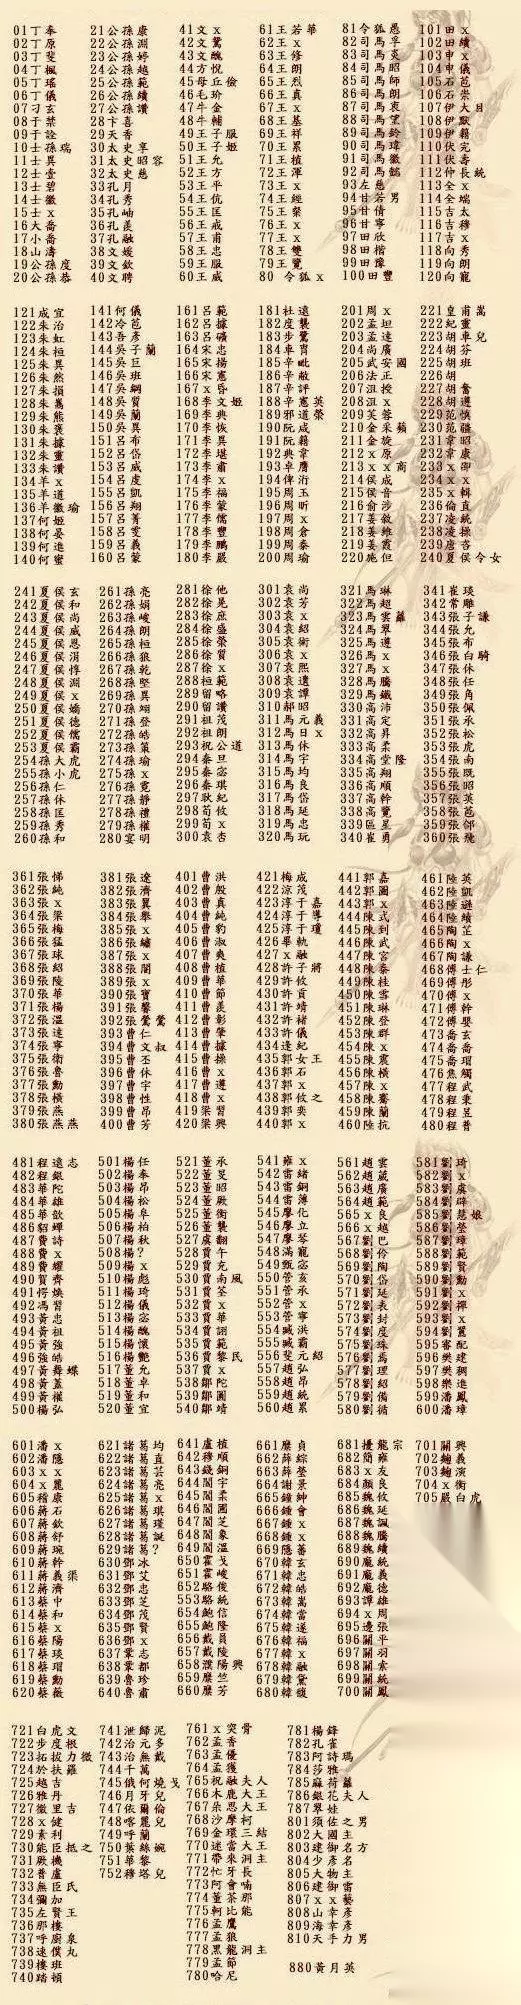 01丁奉
02丁原
03丁斐
04丁楓
05丁瑤
06丁儀
07刁玄
08于禁
09于詮
10士孫瑞
11士異
12士壹
13士碧
14士徽
15士x
16大喬
17小喬
18山濤
19公孫度
20公孫恭
21公孫康
22公孫淵
23公孫婷
24公孫越
25公孫范
26公孫續
27公孫瓚
28卞喜
29天香
30太史享
31太史昭容
32太史慈
33孔月
34孔秀
35孔岫
36孔羨
37孔融
38文媛
39文欽
40文聘
41文x
42文鴦
43文醜
44方悅
45毋丘儉
46毛玠
47牛金
48牛輔
49王子服
50王子姬
51王允
52王方
53王平
54王伉
55王匡
56王戎
57王甫
58王忠
59王服
60王威
61王若華
62王x
63王修
64王朗
65王烈
66王真
67王x
68王基
69王祥
70王累
71王植
72王渾
73王x
74王經
75王粲
76王x
77王x
78王雙
79王覽
80 令狐x
81令狐愚
82司馬孚
83司馬炎
84司馬昭
85司馬師
86司馬朗
87司馬衷
88司馬望
89司馬鈴
90司馬瑋
91司馬徽
92司馬懿
93左慈
94甘若男
95甘倩
96甘寧
97田欣
98田楷
99田豫
100田豐
101田x
102田續
103申x
104申儀
105石苞
106石崇
107伊大目
108伊默
109伊籍
110伏完
111伏壽
112仲長統
113全x
114全端
115吉太
116吉穆
117吉x
118向秀
119向朗
120向寵
121成宜
122朱治
123朱虹
124朱桓
125朱異
126朱然
127朱損
128朱嵩
129朱熊
130朱褒
131朱據
132朱靈
133朱讚
134羊x
135羊道
136羊徽瑜
137何姬
138何晏
139何進
140何蜜
141何儀
142冷苞
143吾彥
144吳子蘭
145吳巨
146吳班
147吳綱
148吳質
149吳蘭
150吳異
151呂布
152呂岱
153呂威
154呂虔
155呂凱
156呂翔
157呂菁
158呂雯
159呂義
160呂蒙
161呂範
162呂據
163呂曠
164宋忠
165宋揚
166宋憲
167x昏
168李文姬
169李典
170李恢
171李異
172李堪
173李肅
174李x
175李福
176李蒙
177李儒
178李豐
179李鵬
180李嚴
181杜遠
182度襲
183步騭
184車胄
185辛毗
186辛敞
187辛評
188辛憲英
189邢道榮
190阮咸
191阮籍
192典韋
193卓膺
194俾衍
195周玉
196周昕
197周x
198周倉
199周泰
200周瑜
201周x
202孟坦
203孟達
204尚廣
205武安國
206法正
207沮授
208沮x
209芙蓉
210金采蘋
211金旋
212x原
213xx商
214侯成
215侯音
216俞涉
217姜敘
218姜維
219姜霞
220施但
221皇甫嵩
222紀靈
223胡車兒
224胡芬
225胡班
226胡
227胡奮
228胡遵
229范慎
230范疆
231韋昭
232韋康
233x卻
234x x
235x輯
236倫直
237凌統
238凌操
239唐咨
240夏侯令女
241夏侯玄
242夏侯和
243夏侯尚
244夏侯威
245夏侯恩
246夏侯涓
247夏侯惇
248夏侯淵
249夏侯x
250夏侯嬌
251夏侯德
252夏侯儒
253夏侯霸
254孫大虎
255孫小虎
256孫仁
257孫休
258孫匡
259孫秀
260孫和
261孫亮
262孫娟
263孫峻
264孫朗
265孫桓
266孫狼
267孫乾
268孫堅
269孫異
270孫翊
271孫登
272孫皓
273孫策
274孫瑜
275孫x
276孫霓
277孫靜
278孫禮
279孫權
280宴明
281徐他
282徐晃
283徐庶
284徐盛
285徐榮
286徐質
287徐x
288桓範
289留略
290留讚
291祖茂
292祖朗
293祝公道
294秦旦
295秦宓
296秦琪
297耿紀
298荀攸
299荀x
300袁杏
301袁尚
302袁芳
303袁x
304袁紹
305袁術
306袁x
307袁熙
308袁遺
309袁譚
310郝昭
311馬元義
312馬日x
313馬休
314馬宇
315馬均
316馬良
317馬岱
318馬延
319馬忠
320馬玩
321馬琳
322馬超
323馬雲蘿
324馬翠
325馬遵
326馬x
327馬x
328馬騰
329馬鐵
330高沛
331高定
332高昇
333高柔
334高堂隆
335高翔
336高順
337高幹
338高覽
339區星
340崔勇
341崔琰
342常雕
343張子謙
344張允
345張布
346張白騎
347張休
348張任
349張角
350張佩
351張承
352張松
353張虎
354張南
355張既
356張昭
357張英
358張苞
359張郃
360張飛
361張悌
362張純
363張x
364張梁
365張梅
366張猛
367張球
368張紹
369張陵
370張華
371張楊
372張溫
373張達
374張寧
375張衛
376張魯
377張勳
378張橫
379張燕
380張燕燕
381張遼
382張濟
383張翼
384張舉
385張x
386張繡
387張x
388張闓
389張x
390張寶
391張馨
392張鶯鶯
393曹仁
394曹文叔
395曹丕
396曹休
397曹宇
398曹性
399曹昂
400曹芳
401曹洪
402曹殷
403曹真
404曹純
405曹豹
406曹淑
407曹爽
408曹植
409曹華
410曹節
411曹羨
412曹彰
413曹肇
414曹據
415曹操
416曹x
417曹遵
418曹x
419梁習
420梁興
421梅成
422涼茂
423淳于嘉
424淳于導
425淳于瓊
426畢軌
427x融
428許子將
429許攸
430許貢
431許靖
432許褚
433許儀
434逢紀
435郭女王
436郭石
437郭x
438郭攸之
439郭奕
440郭x
441郭嘉
442郭圖
443郭x
444陳式
445陳到
446陳武
447陳宮
448陳泰
449陳桂
450陳雪
451陳琳
452陳登
453陳群
454陳x
455陳震
456陳橫
457陳x
458陳騫
459陳蘭
460陸抗
461陸英
462陸凱
463陸遜
464陸績
465陶芷
466陶x
467陶謙
468傅士仁
469傅彤
470傅x
471傅幹
472傅嬰
473喬玄
474喬喬
475喬瑁
476焦觸
477程武
478程秉
479程昱
480程普
481程遠志
482程銀
483華陀
484華雄
485華歆
486貂蟬
487費詩
488費x
489費耀
490賀齊
491愕煥
492馮習
493黃忠
494黃祖
495黃強
496強皓
497黃舞蝶
498黃蓋
499黃權
500楊弘
501楊任
502楊奉
503楊昂
504楊松
505楊阜
506楊柏
507楊秋
508楊?
509楊x
510楊彪
511楊琦
512楊儀
513楊宓
514楊醜
515楊懷
516楊艷
517董允
518董卓
519董和
520董宜
521董承
522董旻
523董昭
524董厥
525董衡
526董襲
527虞翻
528賈午
529賈充
530賈南風
531賈荃
532賈x
533賈華
534賈詡
535賈範
536賈黎民
537賈x
538鄒陀
539鄒圖
540鄒靖
541雍x
542雷緒
543雷銅
544雷薄
545廖化
546廖立
547廖琴
548滿寵
549甄宓
550管亥
551管承
552管x
553管寧
554臧洪
555臧霸
556斐元紹
557趙弘
558趙昂
559趙統
560趙累
561趙雲
562趙葳
563趙廣
564趙範
565x良
566x越
567劉巴
568劉伶
569劉陶
570劉岱
571劉延
572劉表
573劉封
574劉度
575劉珠
576劉焉
577劉理
578劉紹
579劉備
580劉循
581劉琦
582劉x
583劉虞
584劉碑
585劉慧娘
586劉瑩
587劉璋
588劉範
589劉賢
590劉勳
591劉x
592劉禪
593劉x
594劉䵋
595審配
596樊建
597樊稠
598樂進
599潘鳳
600潘璋
601潘x
602潘隱
603x x
604x麗
605稽康
606蔣石
607蔣欽
608蔣舒
609蔣琬
610蔣幹
611蔣義渠
612蔣濟
613蔡中
614蔡和
615蔡x
616蔡陽
617蔡琰
618蔡瑁
619蔡勳
620蔡薇
621諸葛均
622諸葛直
623諸葛芸
624諸葛亮
625諸葛恪
626諸葛琪
627諸葛瑾
628諸葛誕
629諸葛?
630鄧冰
631鄧艾
632鄧忠
633鄧芝
634鄧茂
635鄧賢
636鄧x
637鞏志
638鞏都
639魯珍
640魯肅
641盧植
642穆順
643錢銅
644閻宇
645閻柔
646閻圃
647閻芝
648閻象
649閻溫
650霍戈
651霍峻
652駱俊
653駱統
654鮑信
655鮑隆
656戴員
657戴陵
658濮陽興
659糜竺
660糜芳
661糜貞
662薛綜
663薛瑩
664謝景
665鍾紳
666鍾會
667鍾x
668鍾x
669隱蕃
670韓玄
671韓忠
672韓皓
673韓嵩
674韓當
675韓遂
676韓福
677韓x
678韓融
679韓龍
680韓馥
681擾龍宗
682簡雍
683x友
684顏良
685魏攸
686魏延
687魏諷
688魏騰
689魏續
690龐統
691龐義
692龐德
693譚雄
694x周
695邊張
696關平
697關羽
698關索
699關統
700關鳳
701關興
702麴義
703麴演
704x衡
705嚴白虎
721白虎文
722步度根
723拓拔力微
724於扶羅
725越吉
726雅丹
727徹里吉
728x健
729素利
730能臣抵之
731厥機
732普盧
733無臣氏
734彌加
735左賢王
736那樓
737呼廚泉
738速僕丸
739樓班
740踏頓
741泄歸泥
742治元多
743治無戴
744千萬
745俄何燒戈
746月牙兒
747依爾倫
748喀麗兒
749呼蘭
750葉絲婉
751華黎
752穆塔兒
761x突骨
762孟香
763孟優
764孟獲
765祝融夫人
766木鹿大王
767朵思大王
768沙摩柯
769金環三結
770迷當大王
771帶來洞主
772忙牙長
773阿會喃
774董荼那
775軻比能
776孟鷹
777孟狼
778黑龍洞主
779孟節
780哈尼
781楊鋒
782孔雀
783阿詩瑪
784莎雅
785麻荷蘿
786銀花夫人
787翠娃
801須佐之男
802大國主
803建御名方
804少彥名
805大物主
806建御雷
807x x藝
808山幸彥
809海幸彥
810天手力男
880黃月英